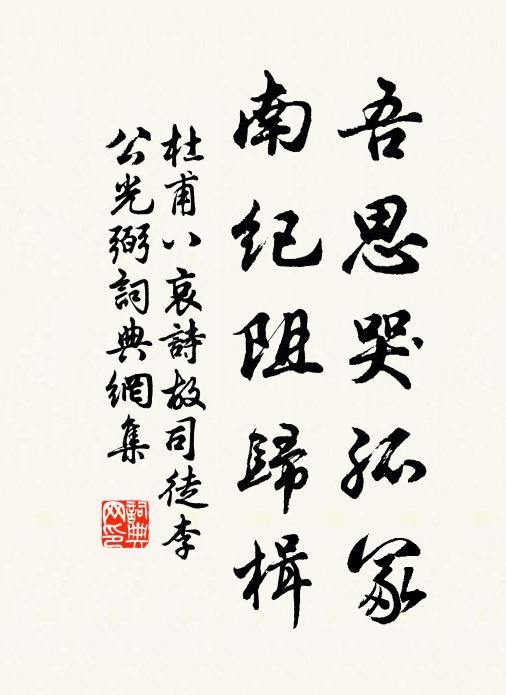 吾思哭孤冢
南纪阻歸楫
杜甫八哀詩故司徒李
公光弼詞典網集
詞典网印